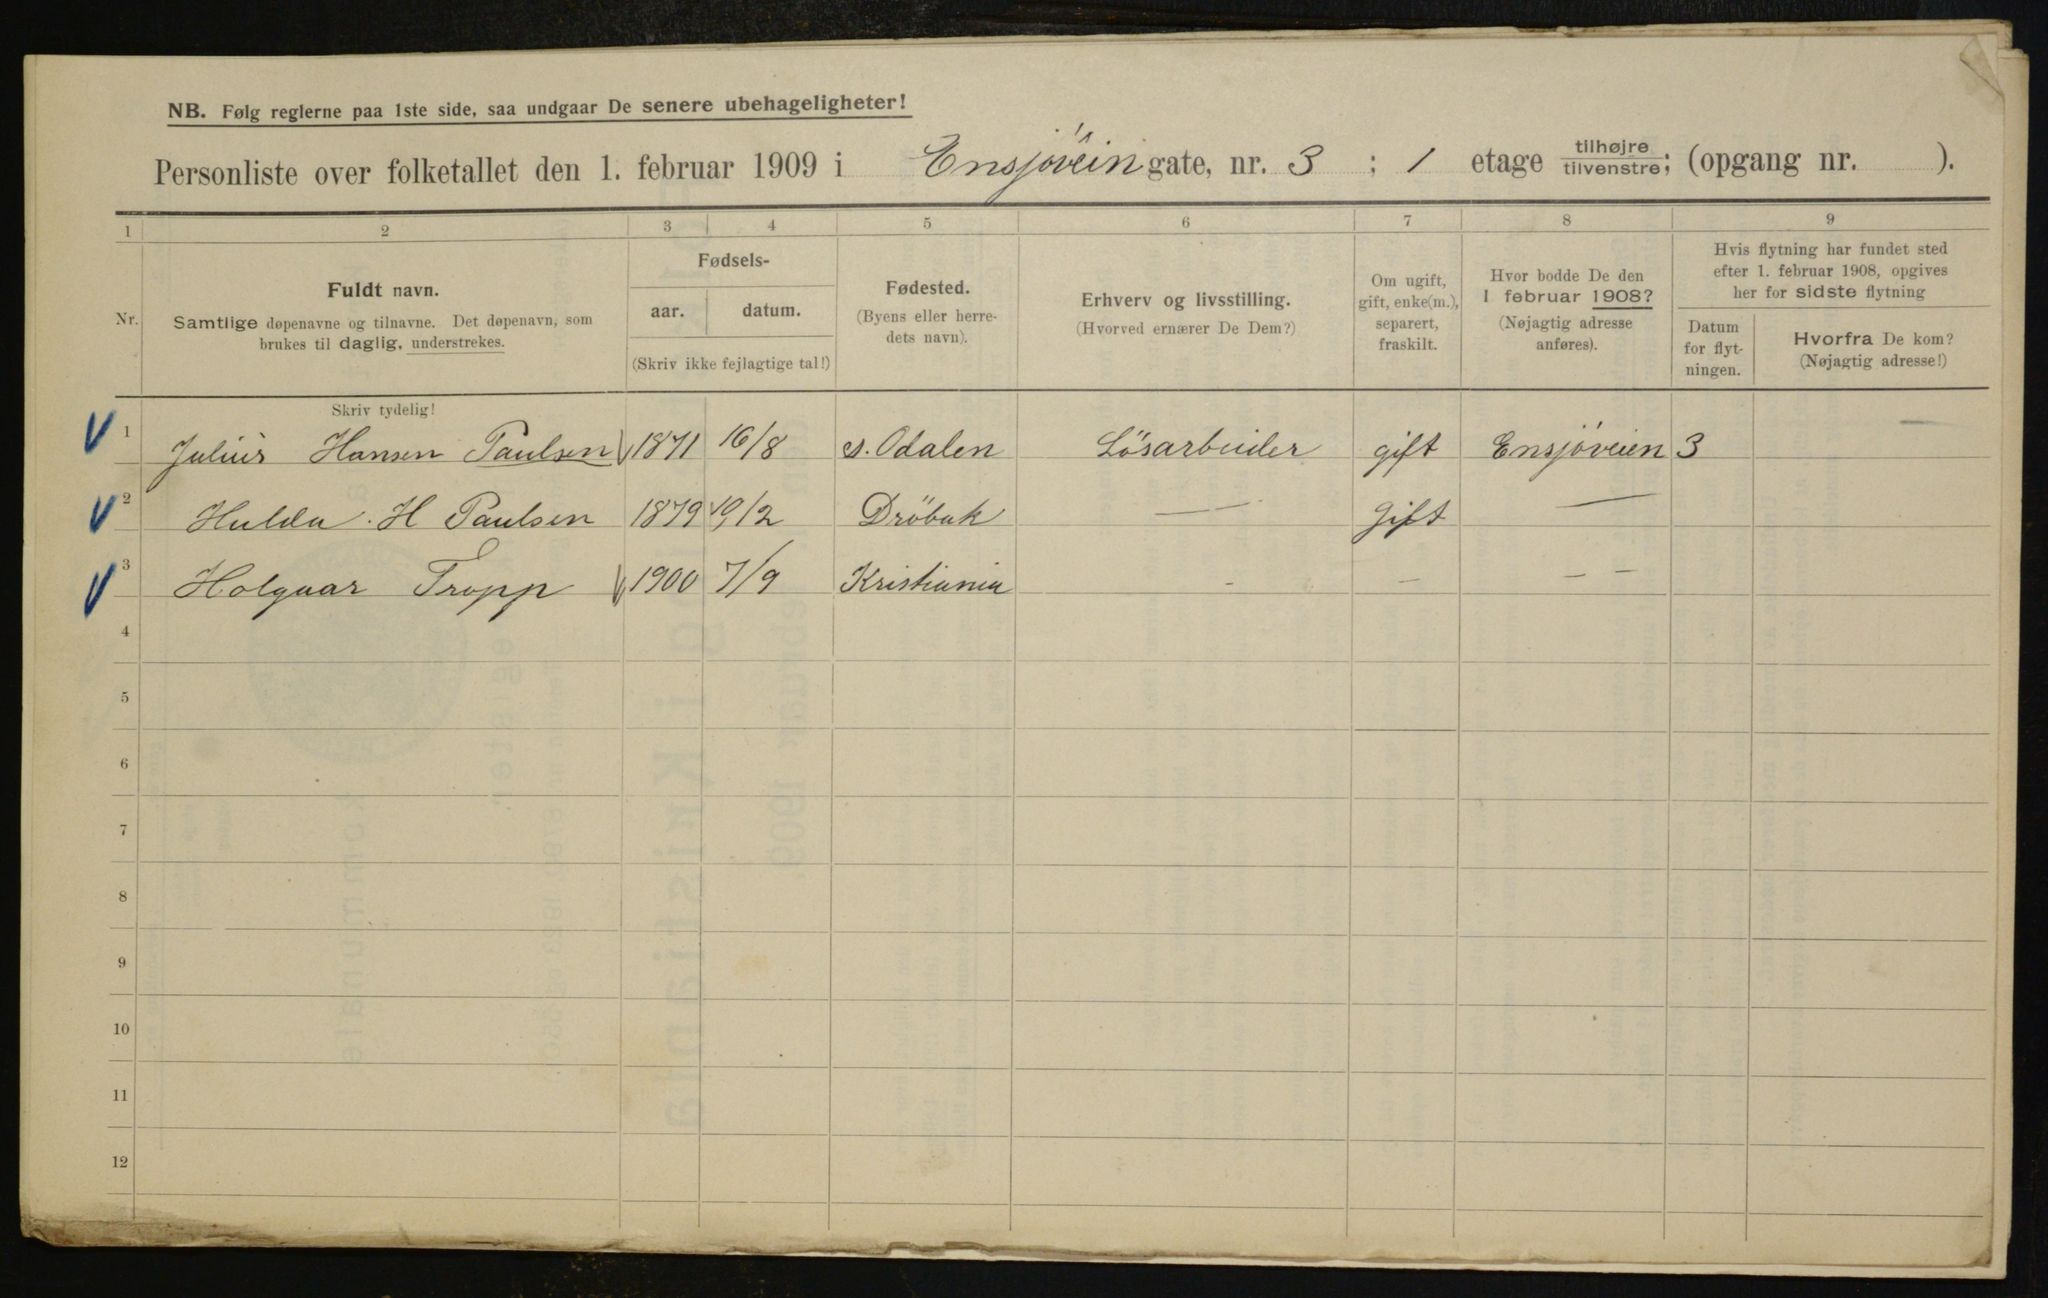 NB. Følg reglerne paa 1ste side, saa undgaar De senere ubehageligheter!
Personliste over folketallet den 1. februar 1909 i Ensjøvein gate, nr. 3 ; 1 etage tilhøjre/tilvenstre; (opgang nr. ).
1 2 3 4 5 6 7 8 9
Nr.
Fuldt navn.
Samtlige døpenavne og tilnavne. Det døpenavn, som
brukes til daglig, understrekes.
Fødsels-
aar. datum.
(Skriv ikke fejlagtige tal!)
Fødested.
(Byens eller herre-
dets navn).
Erhverv og livsstilling.
(Hvorved ernærer De Dem?)
Om ugift,
gift, enke(m.),
separert,
fraskilt.
Hvor bodde De den
1 februar 1908?
(Nøjagtig adresse
anføres).
Hvis flytning har fundet sted
efter 1. februar 1908, opgives
her for sidste flytning
Datum
for flyt-
ningen.
Hvorfra De kom?
(Nøjagtig adresse!)
Skriv tydelig!
1 Julius Hansen Paulsen 1871 16/8 s. Odalen Lösarbeider gift Ensjöveien 3 —
2 Hulda . H Paulsen 1879 19/2 Dröbak — — Gift —
3 Holgaar Tropp 1900 7/9 Kristiania - - - -
4
5
6
7
8
9
10
11
12